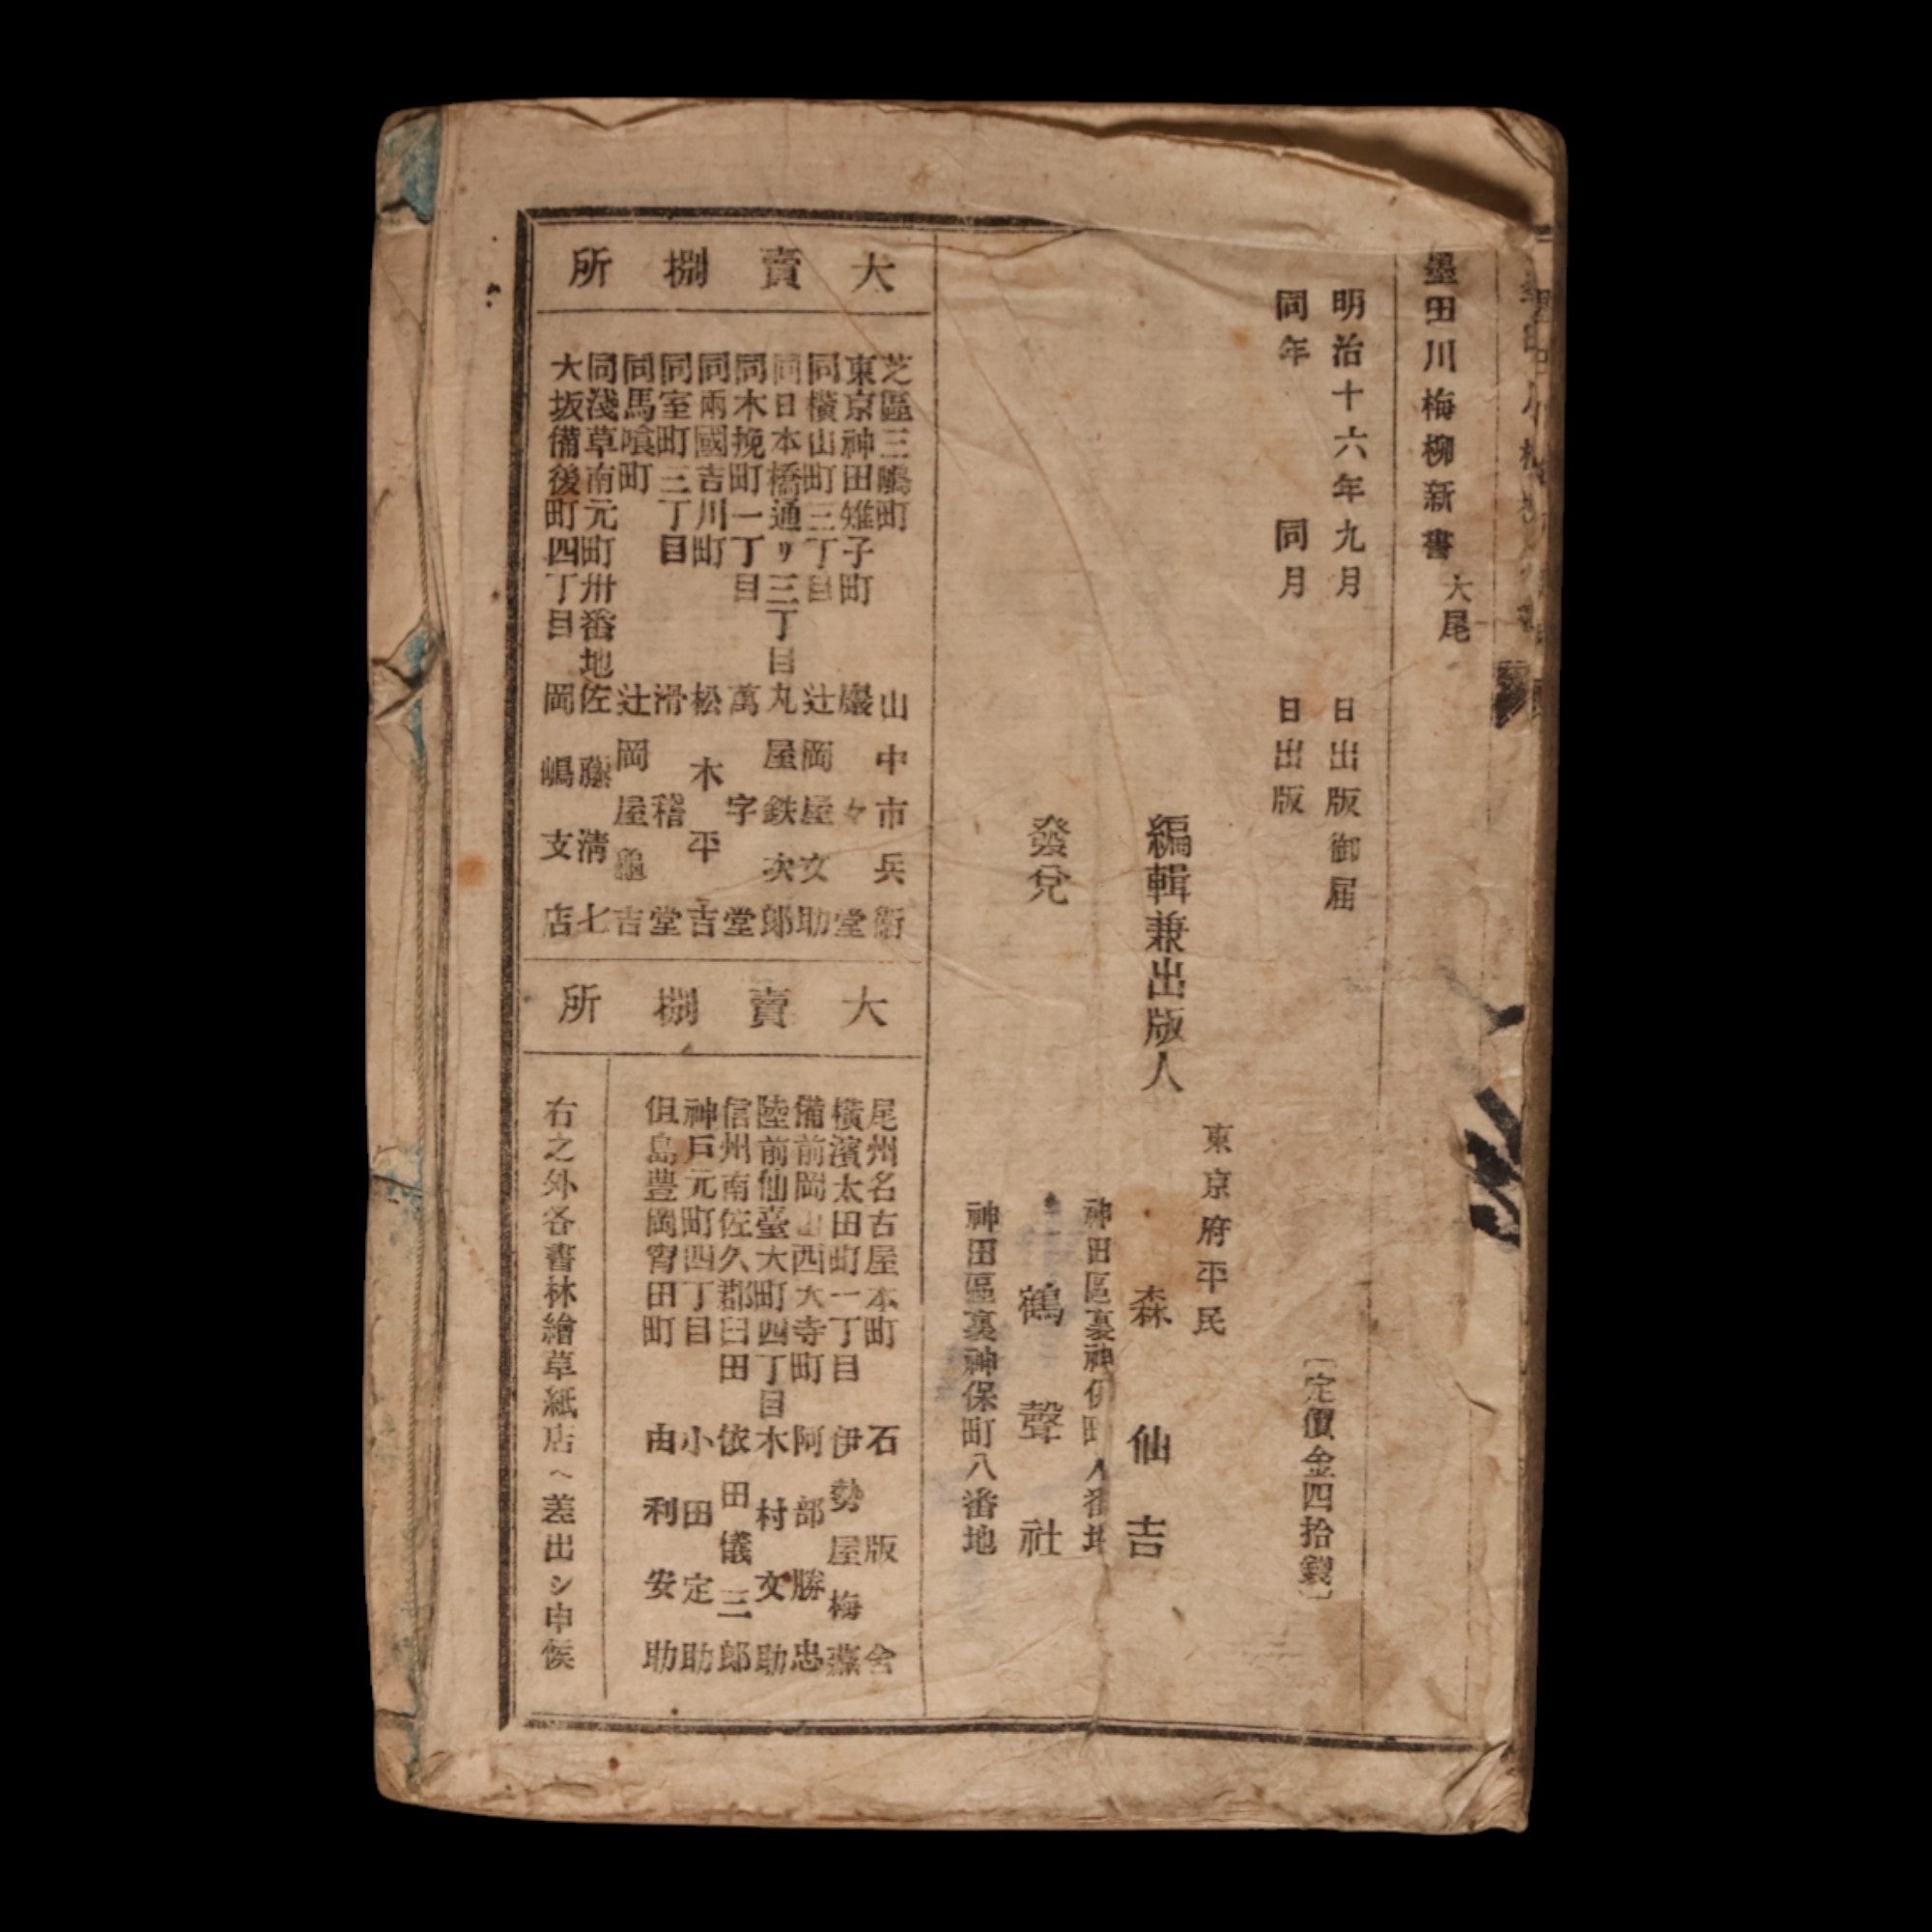 墨田川梅柳新書 大尾
明治十六年九月 日出版御届
同年 同月 日出版
〔定價金四拾錢〕
東京府平民
編輯兼出版人 森仙吉
神田區裏神保町八番地
發兌 鶴聲社
神田區裏神保町八番地
大賣捌所
芝區三嶋町 山中市兵衛
東京神田雉子町 巖々堂
同横山町三丁目 辻岡屋文助
同日本橋通リ三丁目 丸屋鉄次郎
同木挽町一丁目 萬字堂
同兩國吉川町 松木平吉
同室町三丁目 滑稽堂
同馬喰町 辻岡屋亀吉
同淺草南元町卅番地 佐藤清七
大坂備後町四丁目 岡嶋支店
大賣捌所
尾州名古屋本町 石版舍
横濱太田町一丁目 伊勢屋梅藏
備前岡山西大寺町 阿部勝忠
陸前仙臺大町四丁目 木村文助
信州南佐久郡臼田 依田儀三郎
神戸元町四丁目 小田定助
但島豊岡宵田町 由利安助
右之外各書林繪草紙店ヘ差出シ申候